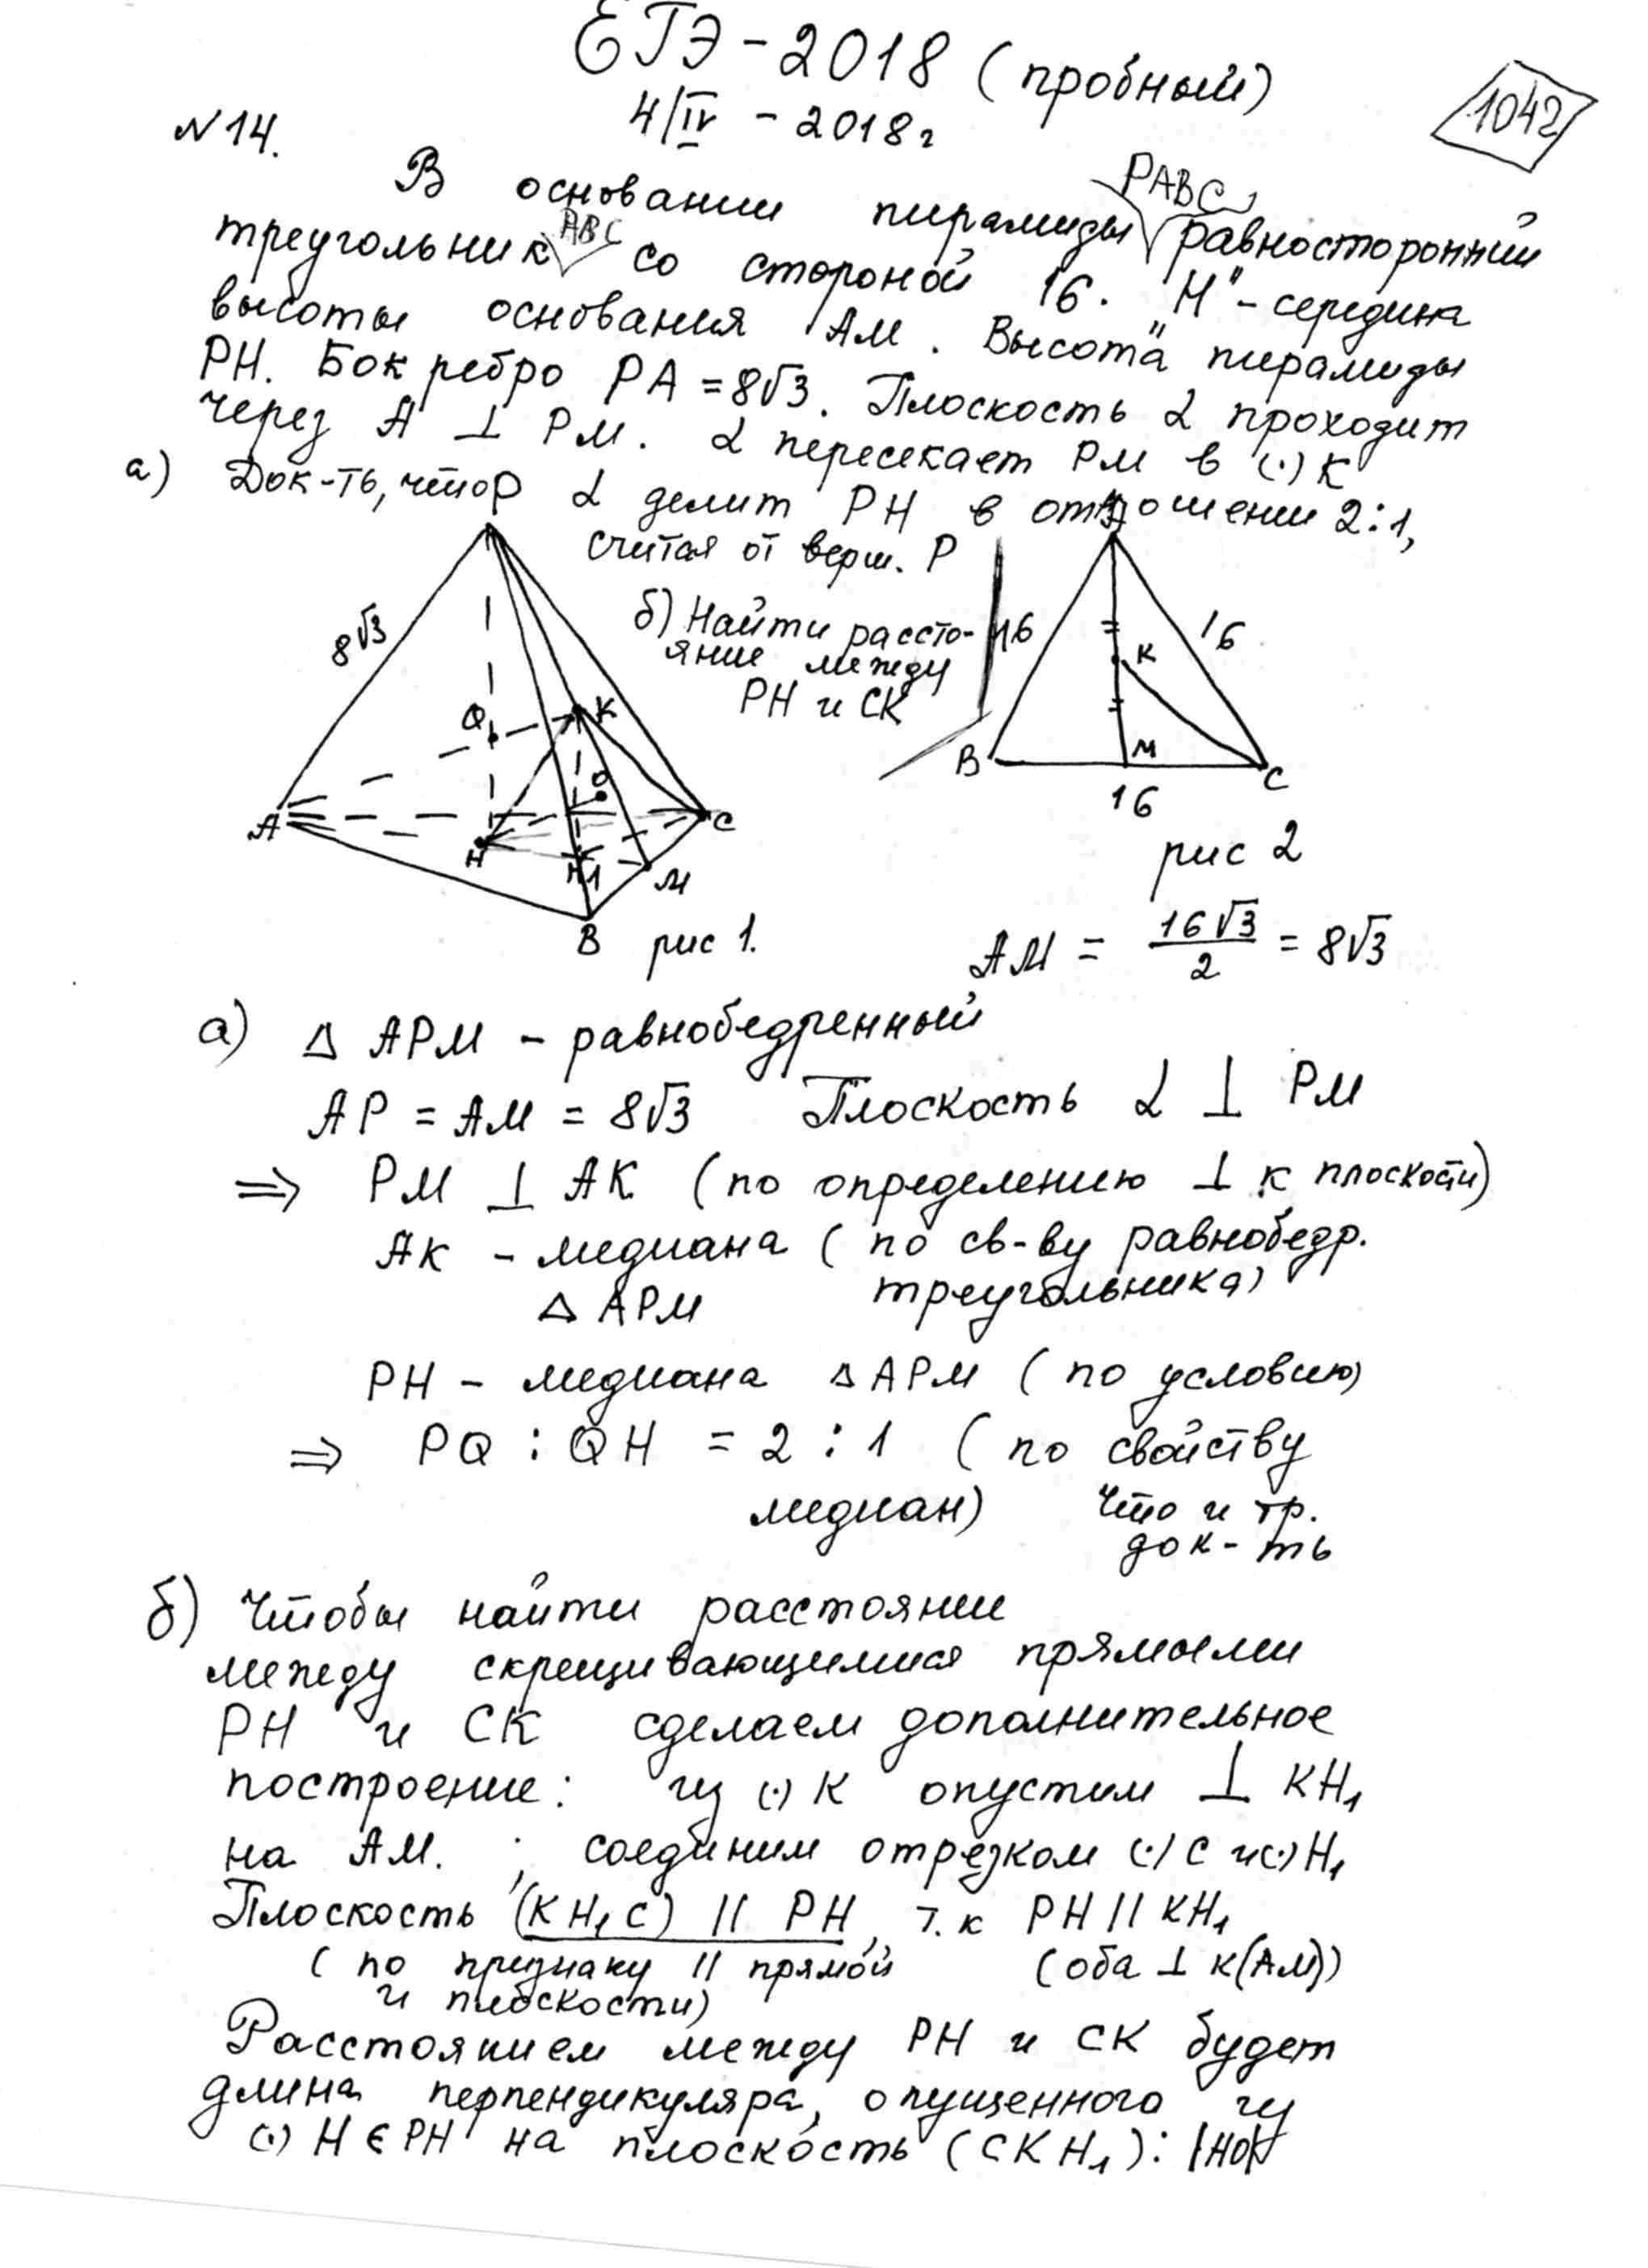 ЕГЭ - 2018 (пробный)
4/IV - 2018г
1042
№14.
В основании пирамиды PABC равносторонний
треугольник ABC со стороной 16. "H" - середина
высоты основания AM. Высота пирамиды
PH. Бок ребро PA = 8√3. Плоскость α проходит
через A ⊥ PM. α пересекает PM в (·) K
а) Док-ть, что α делит PH в отношении 2:1,
считая от верш. P
б) Найти рассто-
яние между
PH и CK
P
8√3
Q
K
O
A
H
H1
C
M
B
рис 1.
A
16
16
K
B
M
C
16
рис 2
AM = 16√3/2 = 8√3
а) Δ APM - равнобедренный
AP = AM = 8√3 Плоскость α ⊥ PM
⇒ PM ⊥ AK (по определению ⊥ к плоскости)
AK - медиана (по св-ву равнобедр.
Δ APM треугольника)
PH - медиана Δ APM (по условию)
⇒ PQ : QH = 2 : 1 (по свойству
медиан) Что и тр.
док-ть
б) Чтобы найти расстоянии
между скрещивающимися прямыми
PH и CK сделаем дополнительное
построение: из (·) K опустим ⊥ KH1
на AM. ; соединим отрезком (·) C и (·) H1
Плоскость (KH1C) || PH, т.к PH || KH1
(по признаку || прямой (оба ⊥ к (AM))
и плоскости)
Расстоянием между PH и CK будет
длина перпендикуляра, опущенного из
(·) H ∈ PH на плоскость (CKH1): |HO|